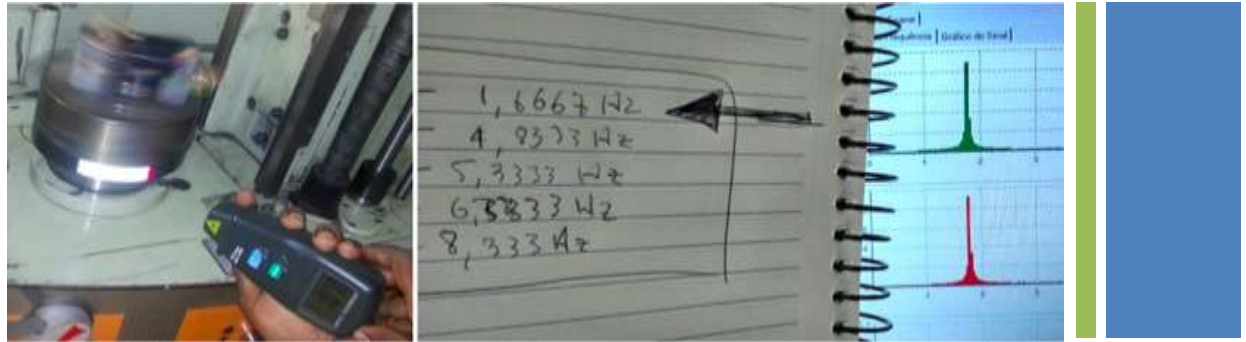 - 1,6667 Hz
- 4,8333 Hz
- 5,3333 Hz
- 8,333 Hz
Gráfico do Sinal